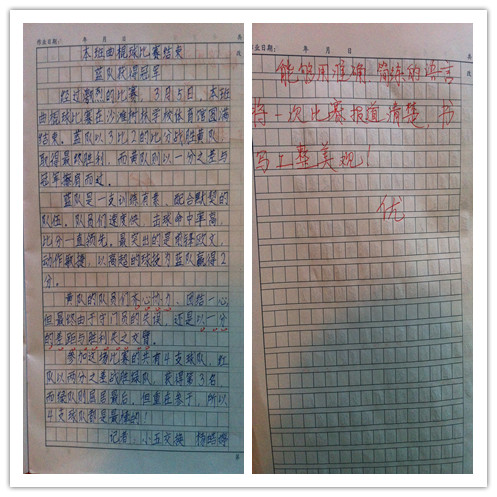 作业日期： 年 月 日
本班曲棍球比赛结束
蓝队获得冠军
经过激烈的比赛，3月5日，本班
曲棍球比赛在沙滩树林学校体育馆圆满
结束。蓝队以3比2的比分战胜黄队，
取得最终胜利，而黄队则以一分之差与
冠军擦肩而过。
蓝队是一支训练有素、配合默契的
队伍。队员们速度快，击球命中率高，
比分一直领先。最突出的是前锋欧文，
动作敏捷，以高超的球技为蓝队赢得2
分。
黄队的队员们齐心协力、团结一心
但最终由于守门员的失误，还是以一分
的差距与胜利失之交臂。
参加这场比赛的共有4支球队，红
队以两分之差战胜绿队，获得第3名
而绿队则屈居最后，但重在参于，所以
4支球队都是最棒的！
记者：小五交换 杨
作业日期： 年 月 日
能够用准确、简练的语言
将一次比赛报道清楚，书
写上整美观！
优